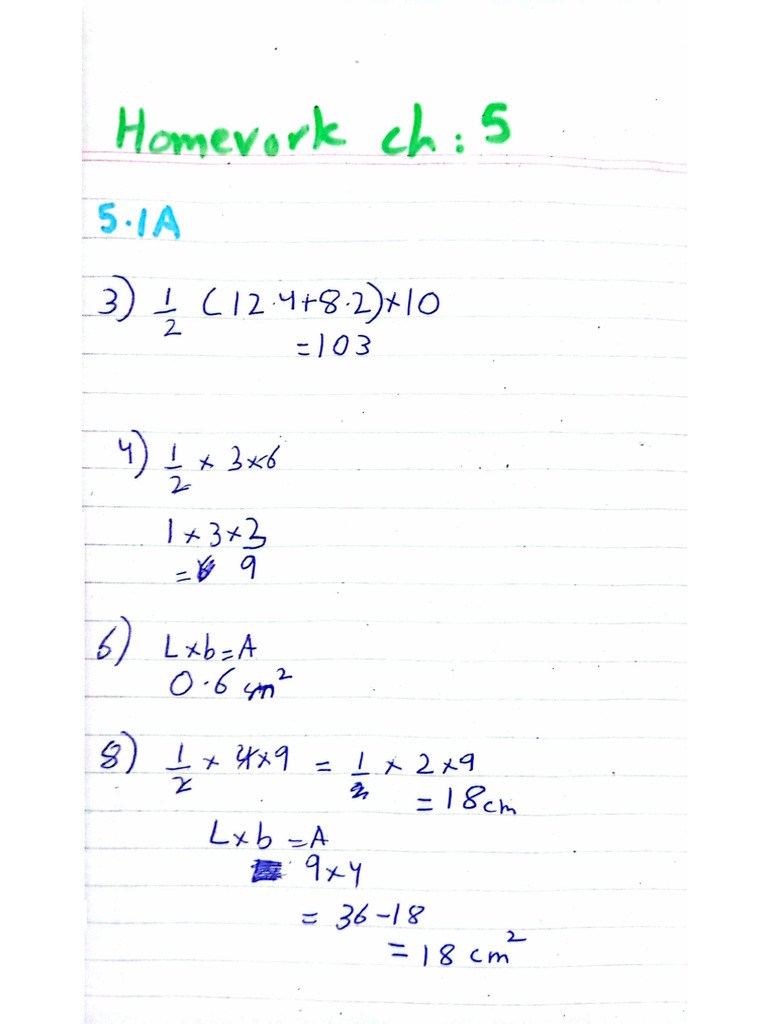 Homework ch: 5
5.1A
3) 1/2 (12.4+8.2)×10
=103
4) 1/2 × 3×6
1×3×3
= 9
6) L×b=A
0.6 cm²
8) 1/2 × 4×9 = 1/2 × 2×9
=18cm
L×b=A
9×4
= 36-18
=18 cm²